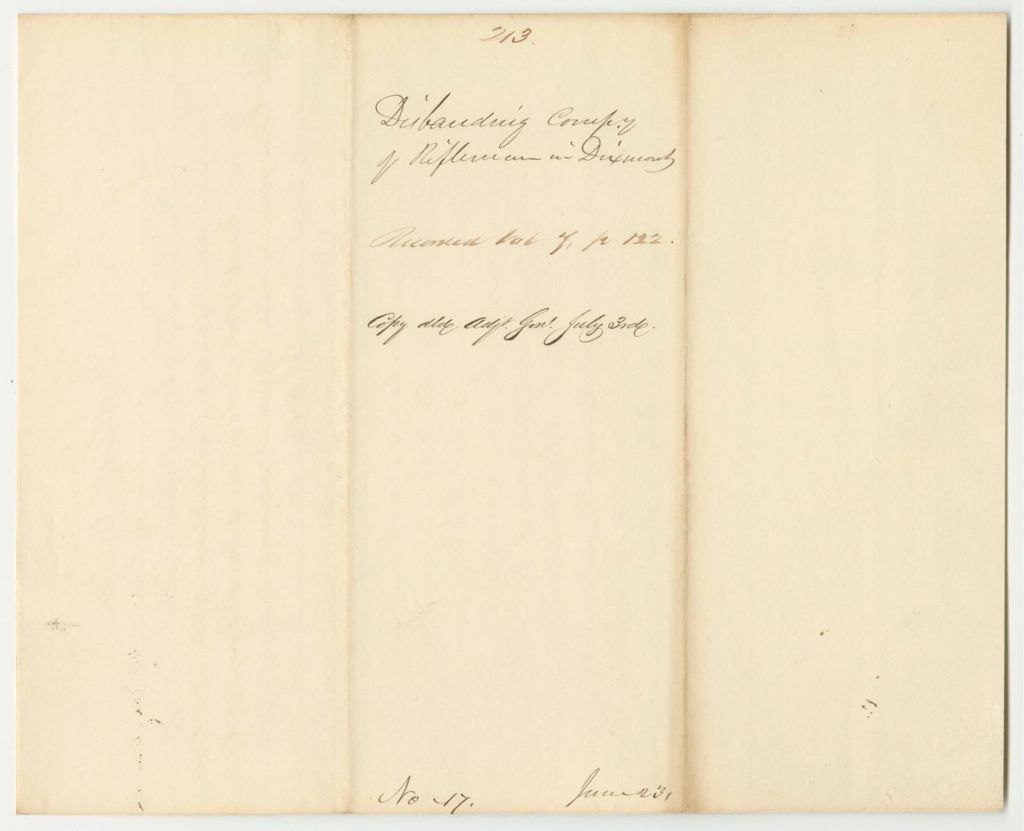 213.
Disbanding Compy
of Riflemen in Dixmont
Recorded Vol 7, p 122.
Copy dld Adjt. Genl. July 3rd.
No 17. June 23,